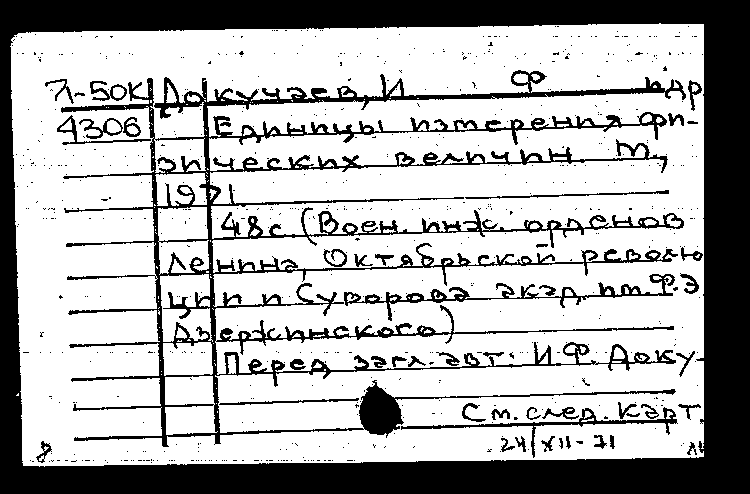 Л-50К Докучаев, И Ф и др
4306 Единицы измерения фи-
зических величин. М.,
1971
48с. (Воен. инж. орденов
Ленина, Октябрьской револю
ции и Суворова акад. им. Ф.Э
Дзержинского)
Перед загл. авт: И.Ф. Доку-
См. след. карт.
24/XII-71
8